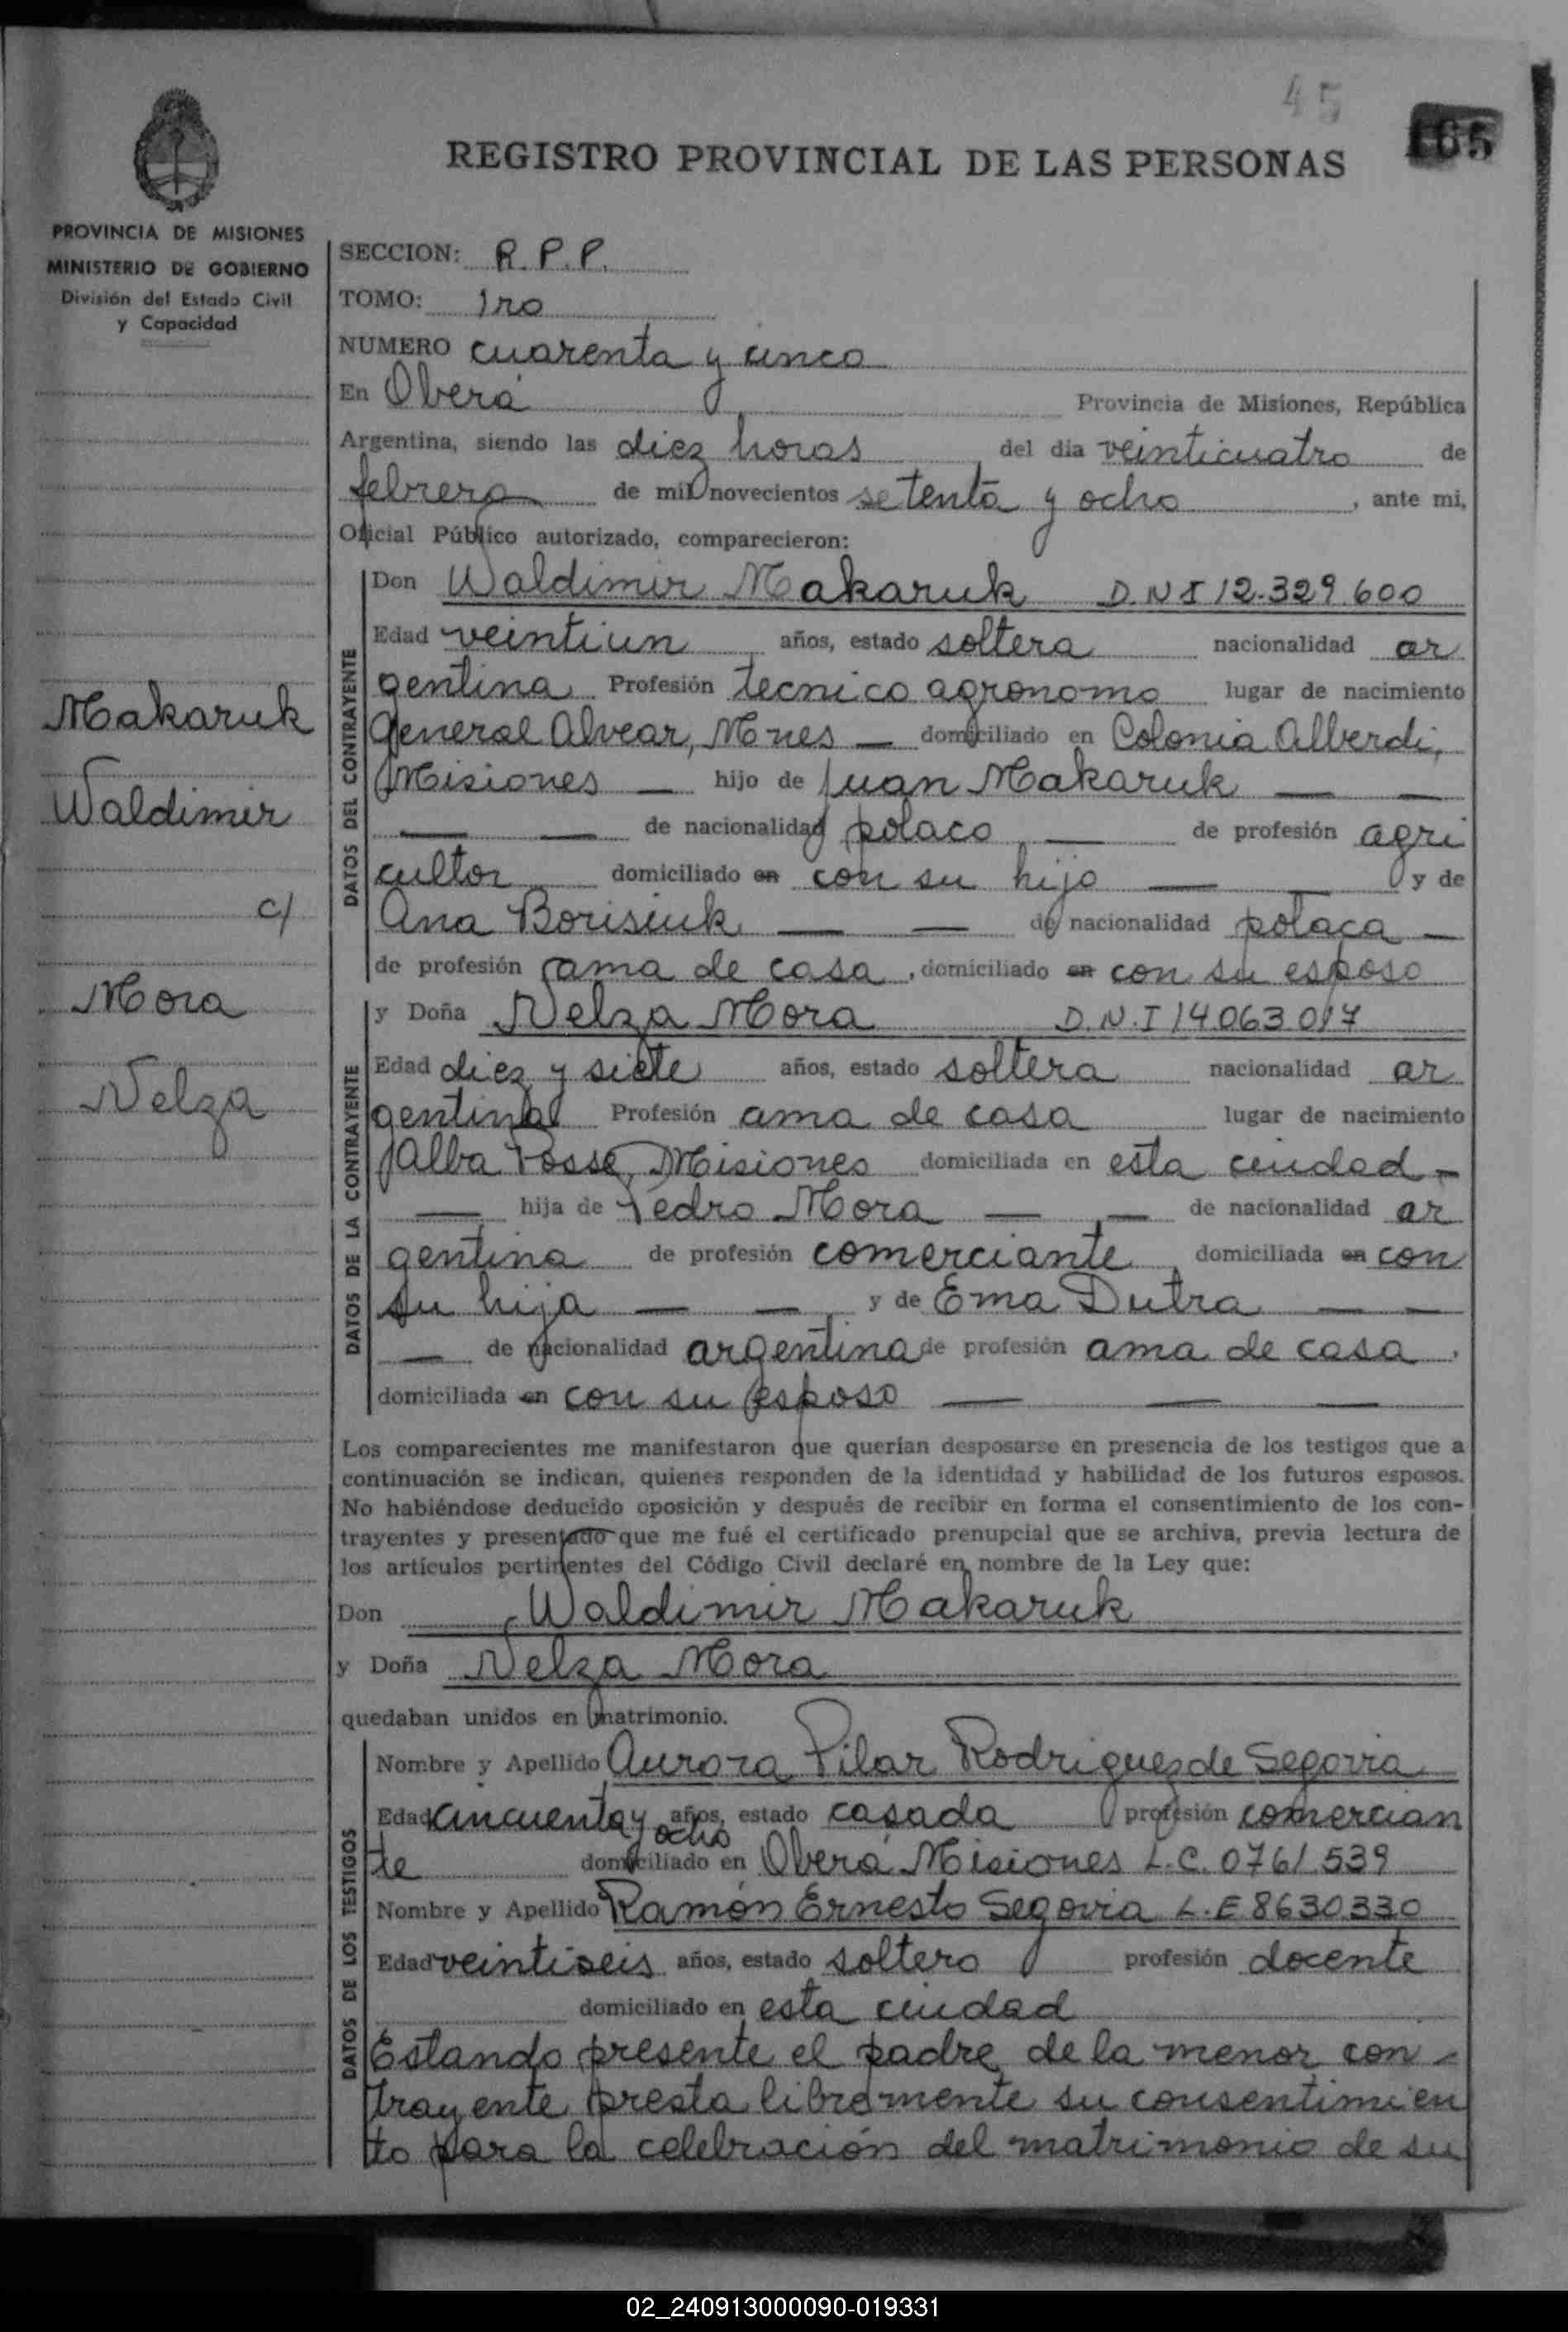 45
165
REGISTRO PROVINCIAL DE LAS PERSONAS
PROVINCIA DE MISIONES
MINISTERIO DE GOBIERNO
División del Estado Civil
y Capacidad
Makaruk
Waldimir
c/
Mora
Nelza
SECCION: R.P.P.
TOMO: 1ro
NUMERO cuarenta y cinco
En Oberá Provincia de Misiones, República
Argentina, siendo las diez horas del dia veinticuatro de
febrero de mil novecientos setenta y ocho, ante mi,
Oficial Público autorizado, comparecieron:
DATOS DEL CONTRAYENTE
Don Waldimir Makaruk D.N.I 12.329.600
Edad veintiun años, estado soltera nacionalidad ar
gentina Profesión tecnico agronomo lugar de nacimiento
General Alvear, Mnes — domiciliado en Colonia Alberdi,
Misiones — hijo de Juan Makaruk — —
— — de nacionalidad polaco — de profesión agri
cultor domiciliado en con su hijo — y de
Ana Borisiuk — — de nacionalidad polaca —
de profesión ama de casa, domiciliado en con su esposo
DATOS DE LA CONTRAYENTE
y Doña Nelza Mora D.N.I 14.063.017
Edad diez y siete años, estado soltera nacionalidad ar
gentina Profesión ama de casa lugar de nacimiento
Alba Posse, Misiones domiciliada en esta ciudad —
— hija de Pedro Mora — — de nacionalidad ar
gentina de profesión comerciante, domiciliada en con
su hija — — y de Ema Dutra — —
— de nacionalidad argentina de profesión ama de casa,
domiciliada en con su esposo — — —
Los comparecientes me manifestaron que querían desposarse en presencia de los testigos que a
continuación se indican, quienes responden de la identidad y habilidad de los futuros esposos.
No habiéndose deducido oposición y después de recibir en forma el consentimiento de los con-
trayentes y presentado que me fué el certificado prenupcial que se archiva, previa lectura de
los artículos pertinentes del Código Civil declaré en nombre de la Ley que:
Don Waldimir Makaruk
y Doña Nelza Mora
quedaban unidos en matrimonio.
DATOS DE LOS TESTIGOS
Nombre y Apellido Aurora Pilar Rodriguez de Segovia
Edad cincuenta y ocho años, estado casada profesión comercian
te domiciliado en Oberá Misiones L.C. 0761.539
Nombre y Apellido Ramón Ernesto Segovia L.E 8630330
Edad veintiseis años, estado soltero profesión docente
domiciliado en esta ciudad
Estando presente el padre de la menor con-
trayente presta libremente su consentimien
to para la celebración del matrimonio de su
02_240913000090-019331